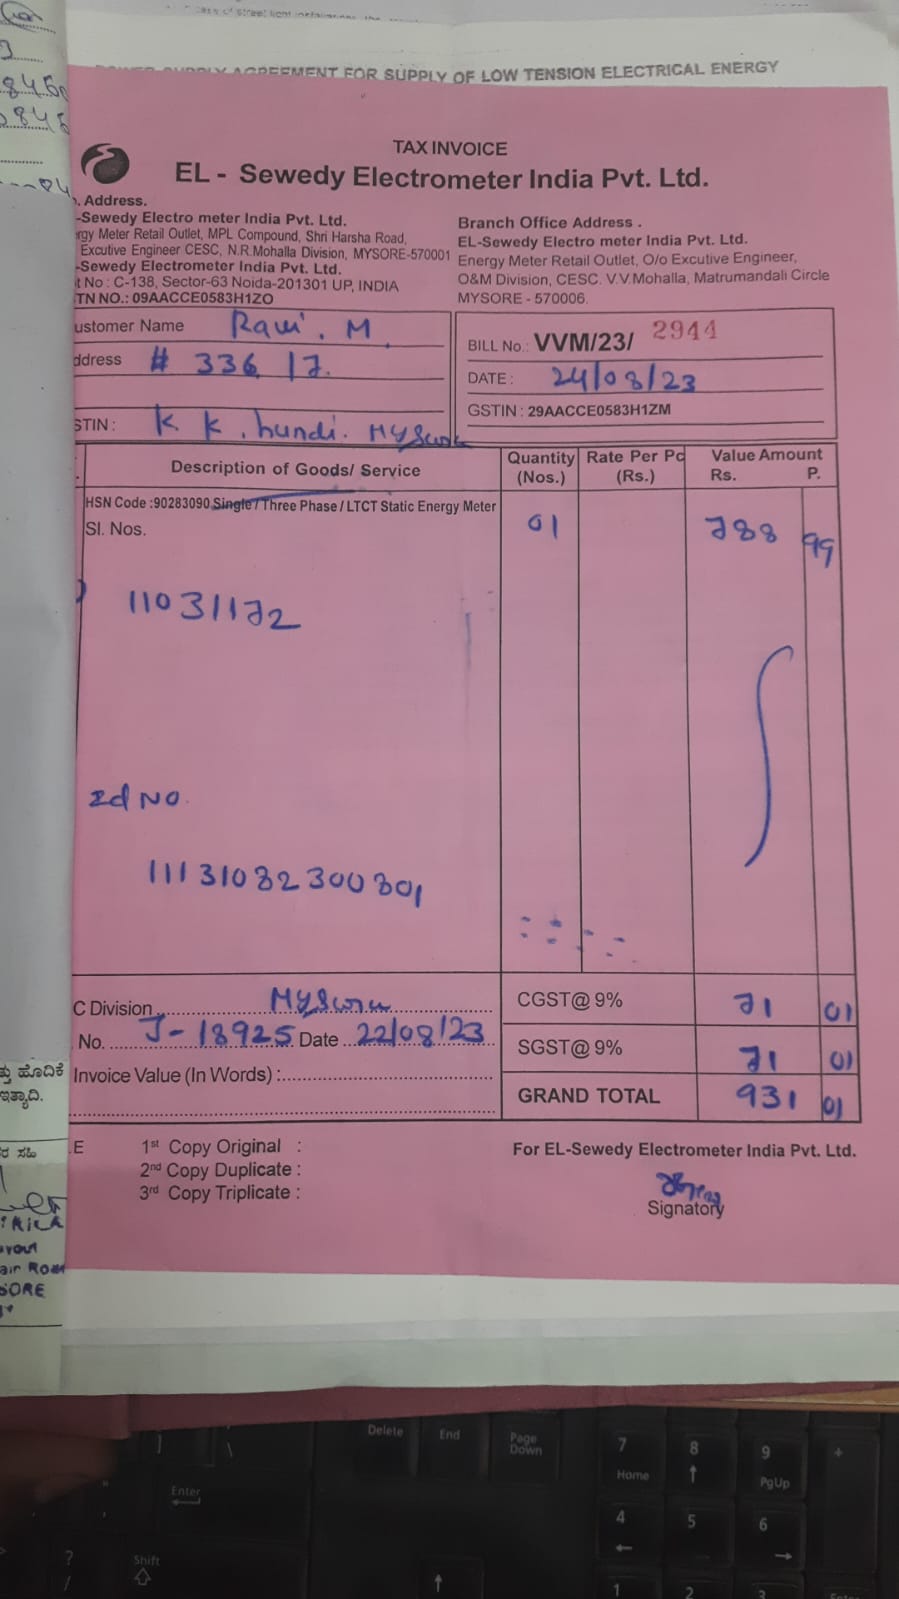 AGREEMENT FOR SUPPLY OF LOW TENSION ELECTRICAL ENERGY
TAX INVOICE
EL - Sewedy Electrometer India Pvt. Ltd.
. Address.
-Sewedy Electro meter India Pvt. Ltd.
rgy Meter Retail Outlet, MPL Compound, Shri Harsha Road,
Excutive Engineer CESC, N.R.Mohalla Division, MYSORE-570001
-Sewedy Electrometer India Pvt. Ltd.
t No : C-138, Sector-63 Noida-201301 UP, INDIA
TN NO.: 09AACCE0583H1ZO
Branch Office Address .
EL-Sewedy Electro meter India Pvt. Ltd.
Energy Meter Retail Outlet, O/o Excutive Engineer,
O&M Division, CESC. V.V.Mohalla, Matrumandali Circle
MYSORE - 570006.
ustomer Name Ravi. M
ddress # 336 17.
STIN : K. K. hundi. Mysore
BILL No.: VVM/23/ 2944
DATE : 24/08/23
GSTIN : 29AACCE0583H1ZM
Description of Goods/ Service Quantity (Nos.) Rate Per Pc (Rs.) Value Amount Rs. P.
HSN Code :90283090 Single / Three Phase / LTCT Static Energy Meter 01 788 99
Sl. Nos.
11031172
Id No.
11131082300801
C Division Mysuru
No. J-18925 Date 22/08/23
Invoice Value (In Words) :
CGST@ 9% 71 01
SGST@ 9% 71 01
GRAND TOTAL 931 01
E 1st Copy Original :
2nd Copy Duplicate :
3rd Copy Triplicate :
For EL-Sewedy Electrometer India Pvt. Ltd.
Signatory
ತ್ತು ಹೊದಿಕೆ
ಇತ್ಯಾದಿ.
ರ ಸಹಿ
SORE
Delete
End
Page Down
7 Home
8
9 PgUp
+
Enter
4
5
6
Shift
? /
1
2
3